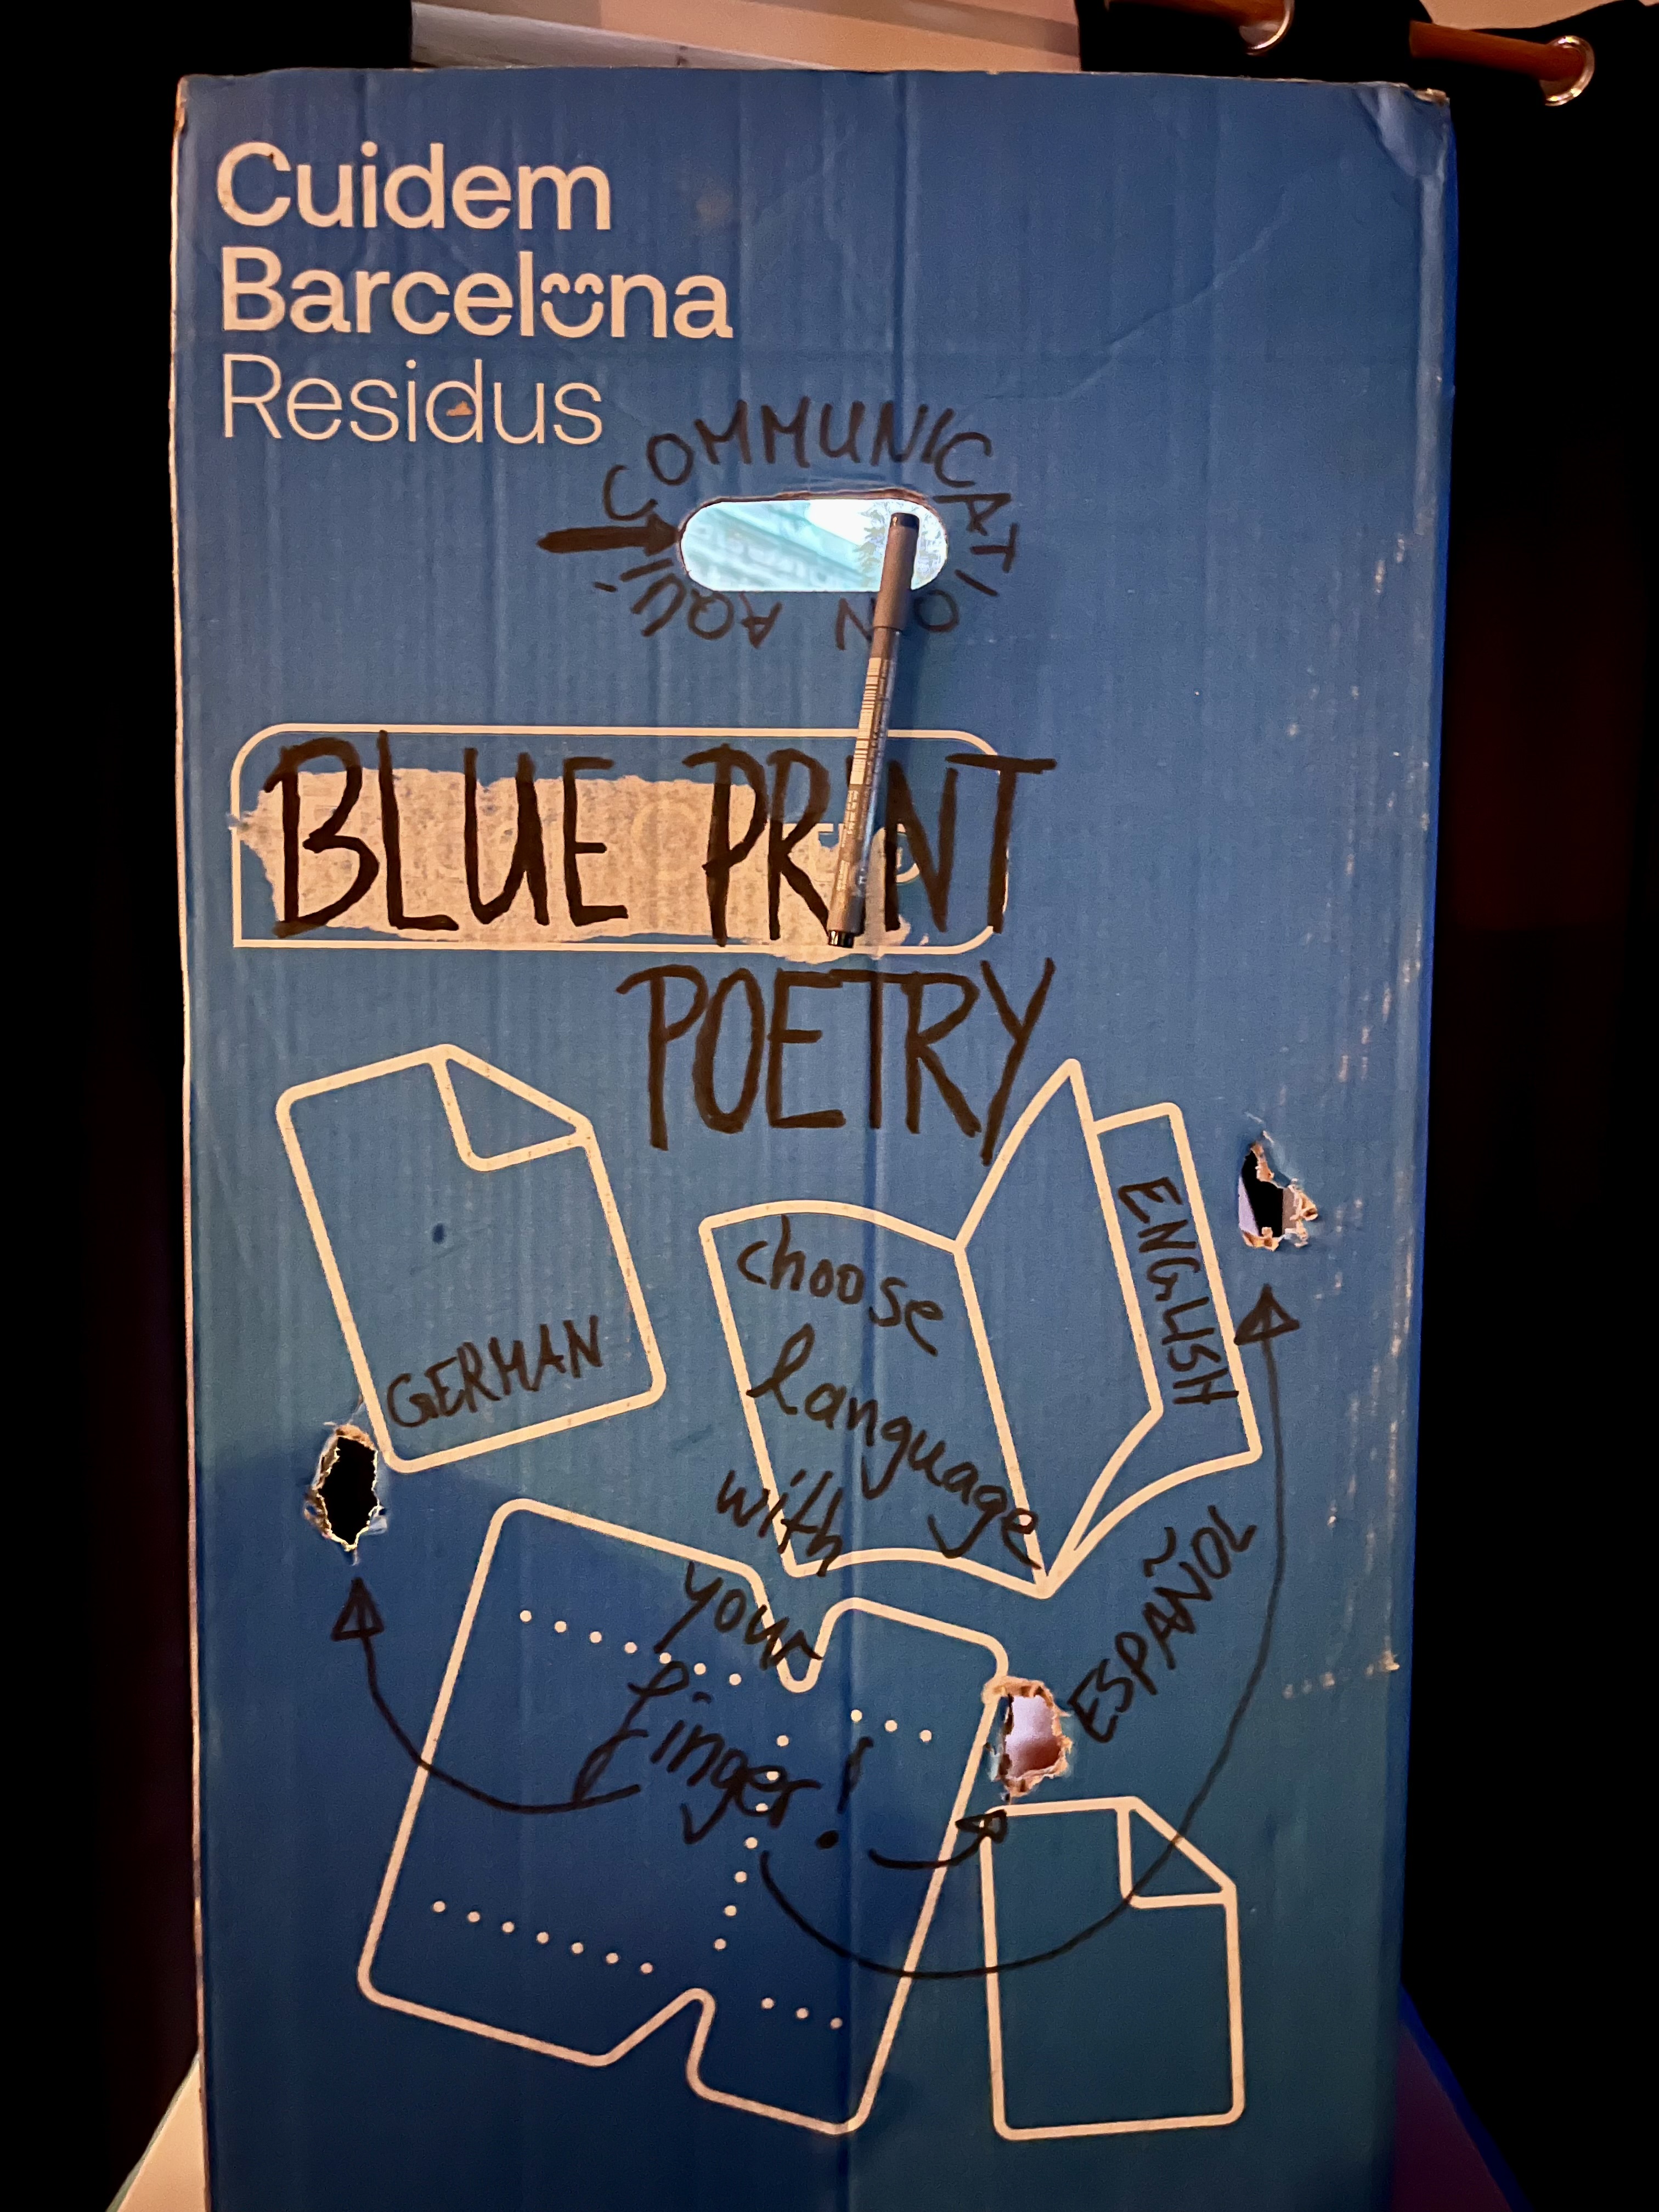 Cuidem
Barcelona
Residus
COMMUNICATION AQUÍ
BLUE PRINT
POETRY
GERMAN
choose
language
with
your
finger!
ENGLISH
ESPAÑOL